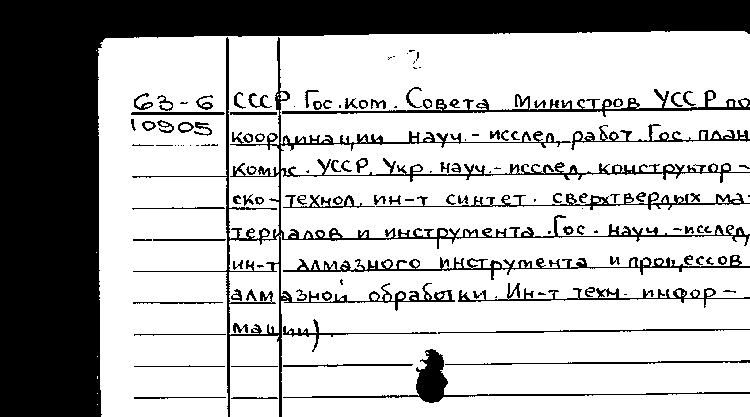 - 2
63-6 СССР. Гос.ком. Совета Министров УССР по
10905
координации науч.-исслед. работ. Гос. план.
комис. УССР. Укр. науч.-исслед. конструктор-
ско-технол. ин-т синтет. сверхтвердых ма-
териалов и инструмента. Гос. науч.-исслед.
ин-т алмазного инструмента и процессов
алмазной обработки. Ин-т техн. инфор-
мации).